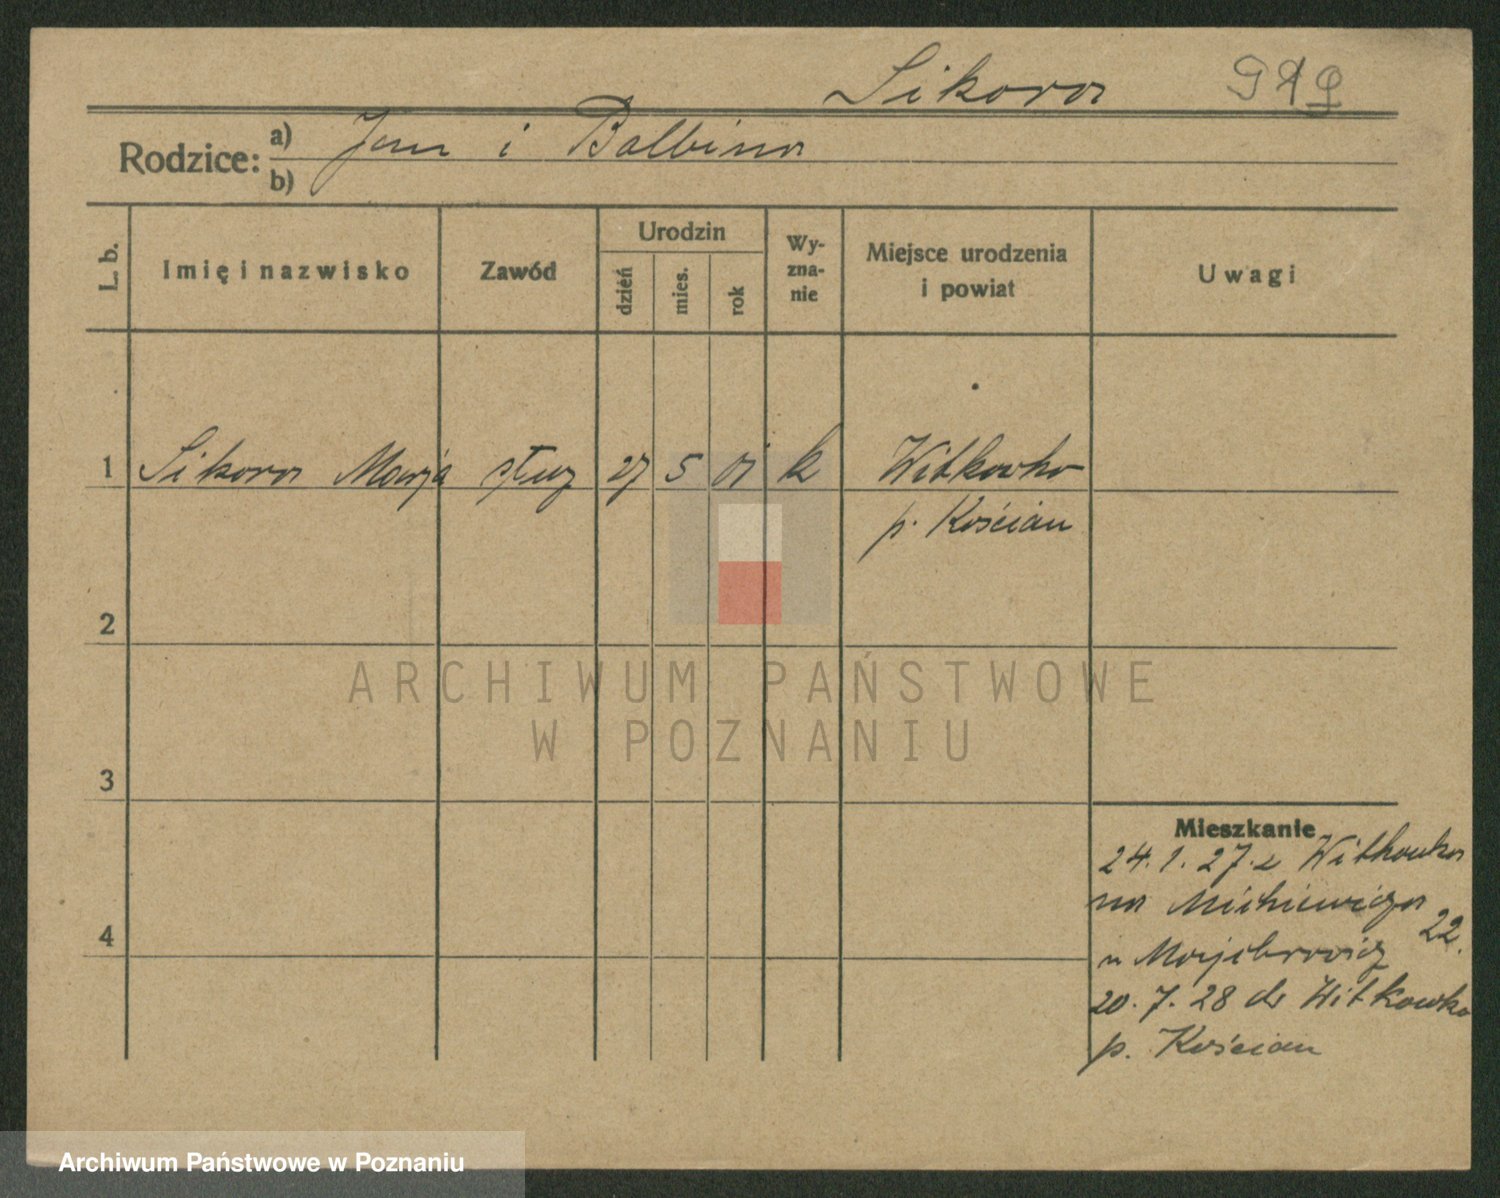 Sikora 919
Rodzice: a) Jan i Balbina
b)
L. b. Imię i nazwisko Zawód Urodzin dzień mies. rok Wy-zna-nie Miejsce urodzenia i powiat Uwagi
1 Sikora Marja służ 27 5 01 k Witkówko
p. Kościan
2
3
4
Mieszkanie
24. 1. 27. z Witkówka
na Mickiewicza 22.
u
20. 7. 28 do Witkówka
p. Kościan
ARCHIWUM PAŃSTWOWE
W POZNANIU
Archiwum Państwowe w Poznaniu